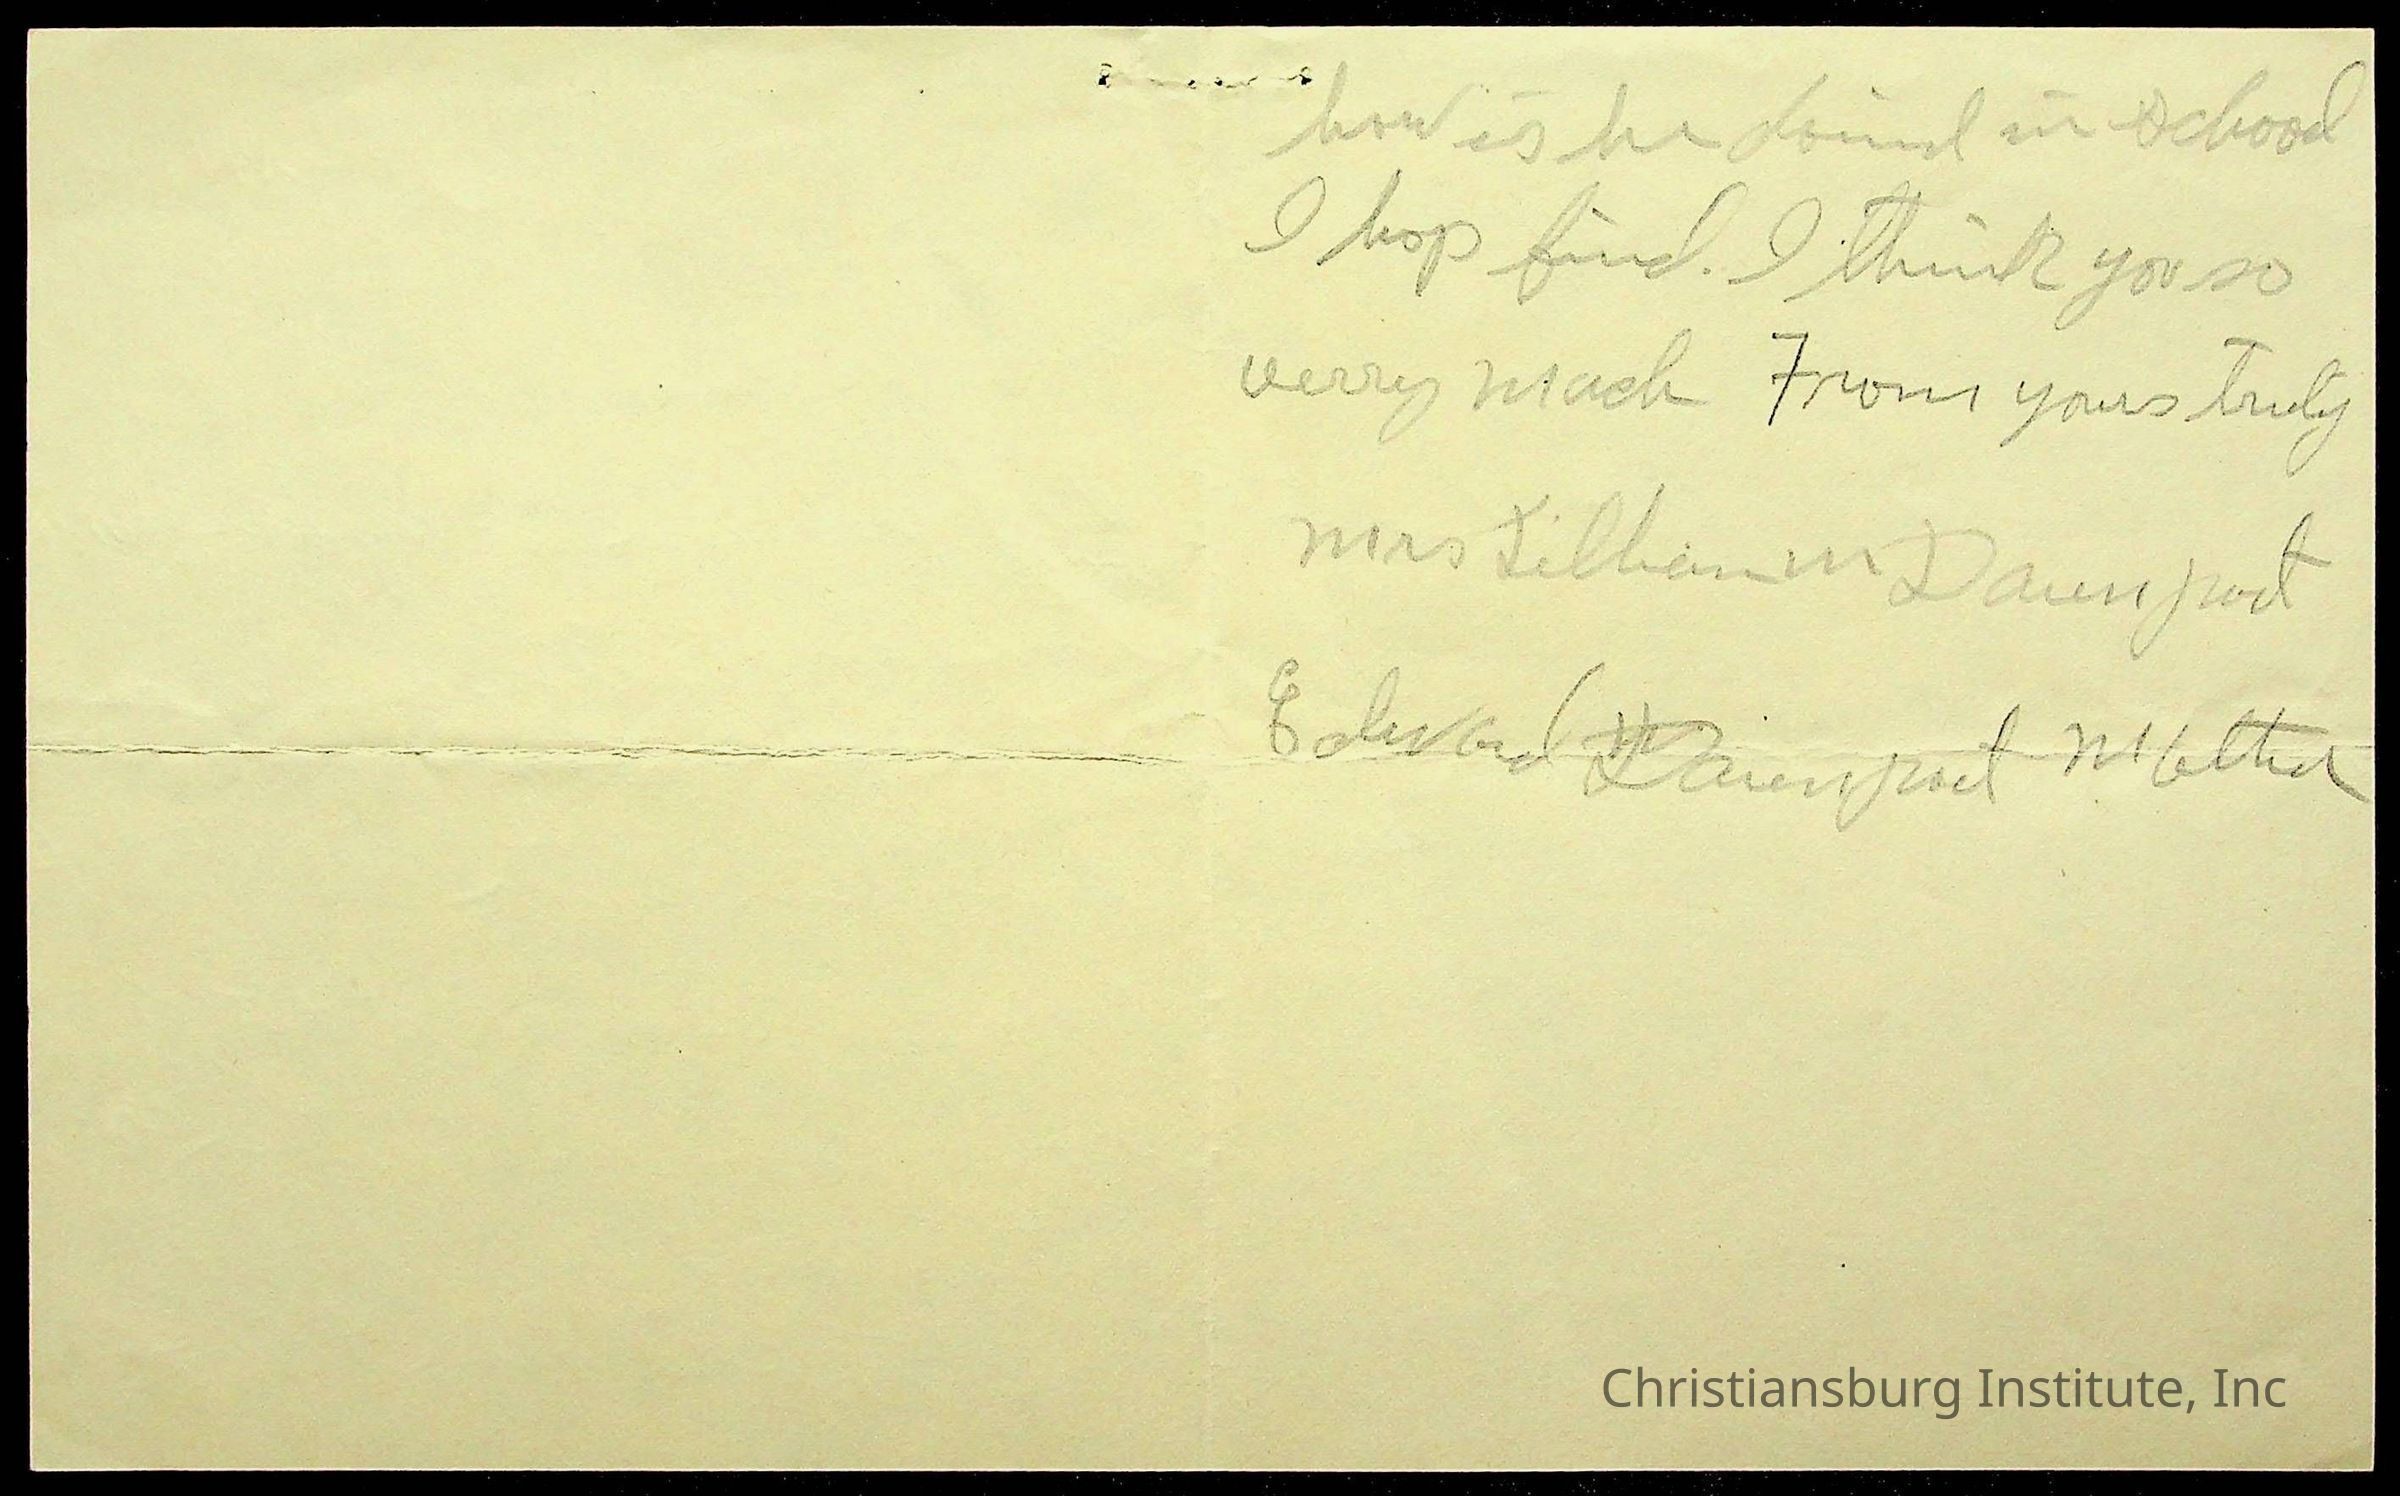 how is he doind in school
I hop find. I think you so
verry much From yours truly
Mrs Lillian M Davenport
Edward Davenport Mother
Christiansburg Institute, Inc